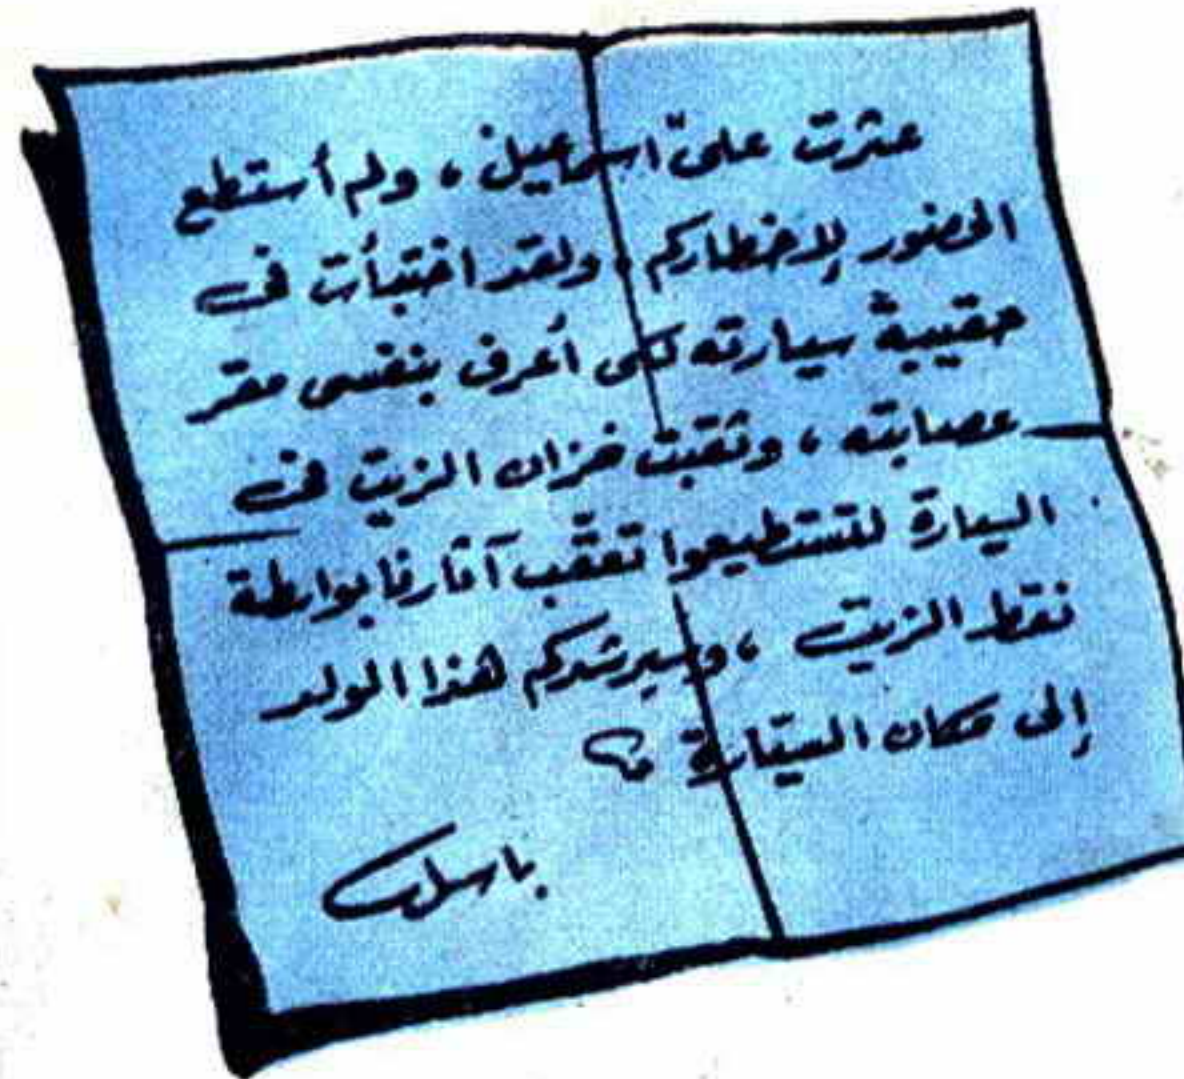 عثرت على اسماعيل ، ولم أستطع
الحضور لإخطاركم ، ولقد اختبأت فى
حقيبة سيارته لكى أعرف بنفسى مقر
عصابته ، وثقبت خزان الزيت فى
السيارة لتستطيعوا تعقب آثارنا بواسطة
نقط الزيت ، وسيرشدكم هذا الولد
إلى مكان السيّارة
باسل